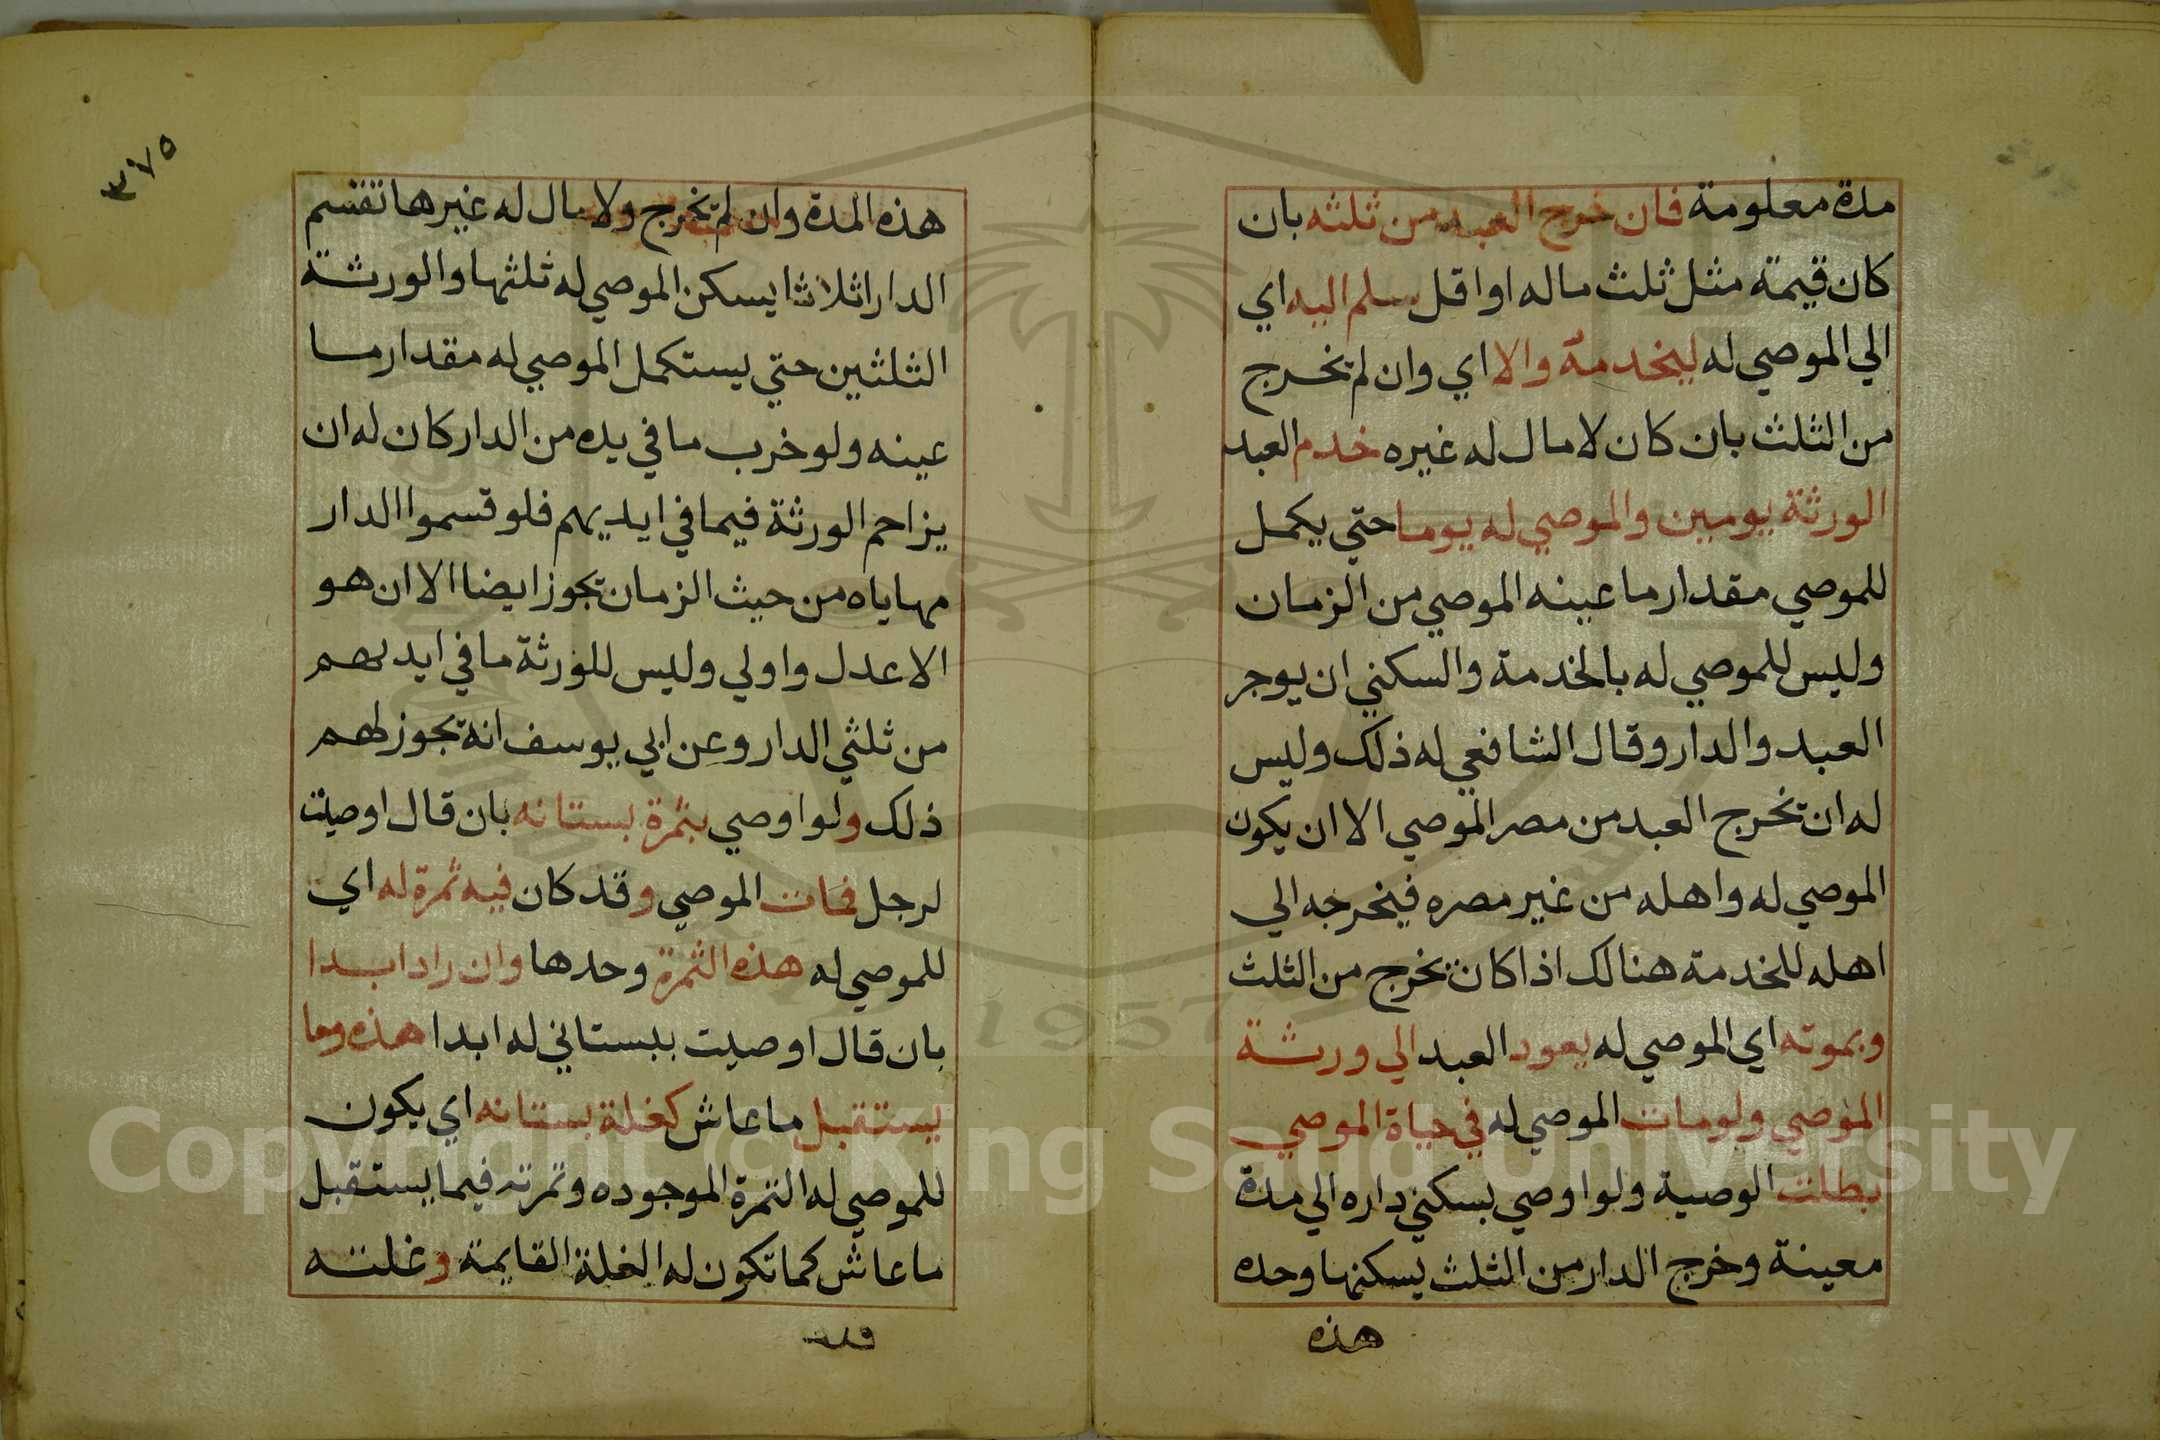 مدة معلومة فان خرج العبد من ثلثه بان
كان قيمة مثل ثلث ماله او اقل سلم اليه اي
الي الموصي له ليخدمه والا اي وان لم تخرج
من الثلث بان كان لا مال له غيره خدم العبد
الورثة يومين والموصي له يوما حتي يكمل
للموصي مقدار ما عينه الموصي من الزمان
وليس للموصي له بالخدمة والسكني ان يوجر
العبد والدار وقال الشافعي له ذلك وليس
له ان تخرج العبد من مصر الموصي الا ان يكون
الموصي له واهله من غير مصره فيخرجه الي
اهله للخدمة هنالك اذا كان تخرج من الثلث
وبموته اي الموصي له يعود العبد الي ورثة
الموصي ولو مات الموصي له في حياة الموصي
بطلت الوصية ولو اوصي بسكني داره الي مدة
معينة وخرج الدار من الثلث يسكنها وحده
هذه
٣٧٥
هذه المدة وان لم تخرج ولا مال له غيرها تقسم
الدار اثلاثا يسكن الموصي له ثلثها والورثة
الثلثين حتي يستكمل الموصي له مقدار ما
عينه ولو خرب ما في يده من الدار كان له ان
يزاحم الورثة فيما في ايديهم فلو قسموا الدار
مهاياه من حيث الزمان تجوز ايضا الا ان هو
الاعدل واولي وليس للورثة ما في ايديهم
من ثلثي الدار وعن ابي يوسف انه تجوز لهم
ذلك ولو اوصي بثمرة بستانه بان قال اوصيت
لرجل فمات الموصي وقد كان فيه ثمرة له اي
للموصي له هذه الثمرة وحدها وان زاد ابدا
بان قال اوصيت ببستاني له ابدا هذه وما
يستقبل ما عاش كغلة بستانه اي يكون
للموصي له الثمرة الموجوده وثمرته فيما يستقبل
ما عاش كما تكون له الغلة القايمة وغلته
Copyright © King Saud University
1957